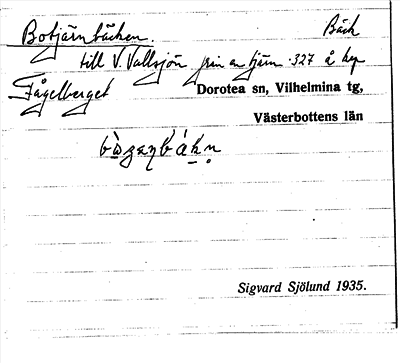 Botjärnbäcken. Bäck
till V. Vallsjön från en tjärn 327 å kap
Fågelberget Dorotea sn, Vilhelmina tg,
Västerbottens län
Sigvard Sjölund 1935.